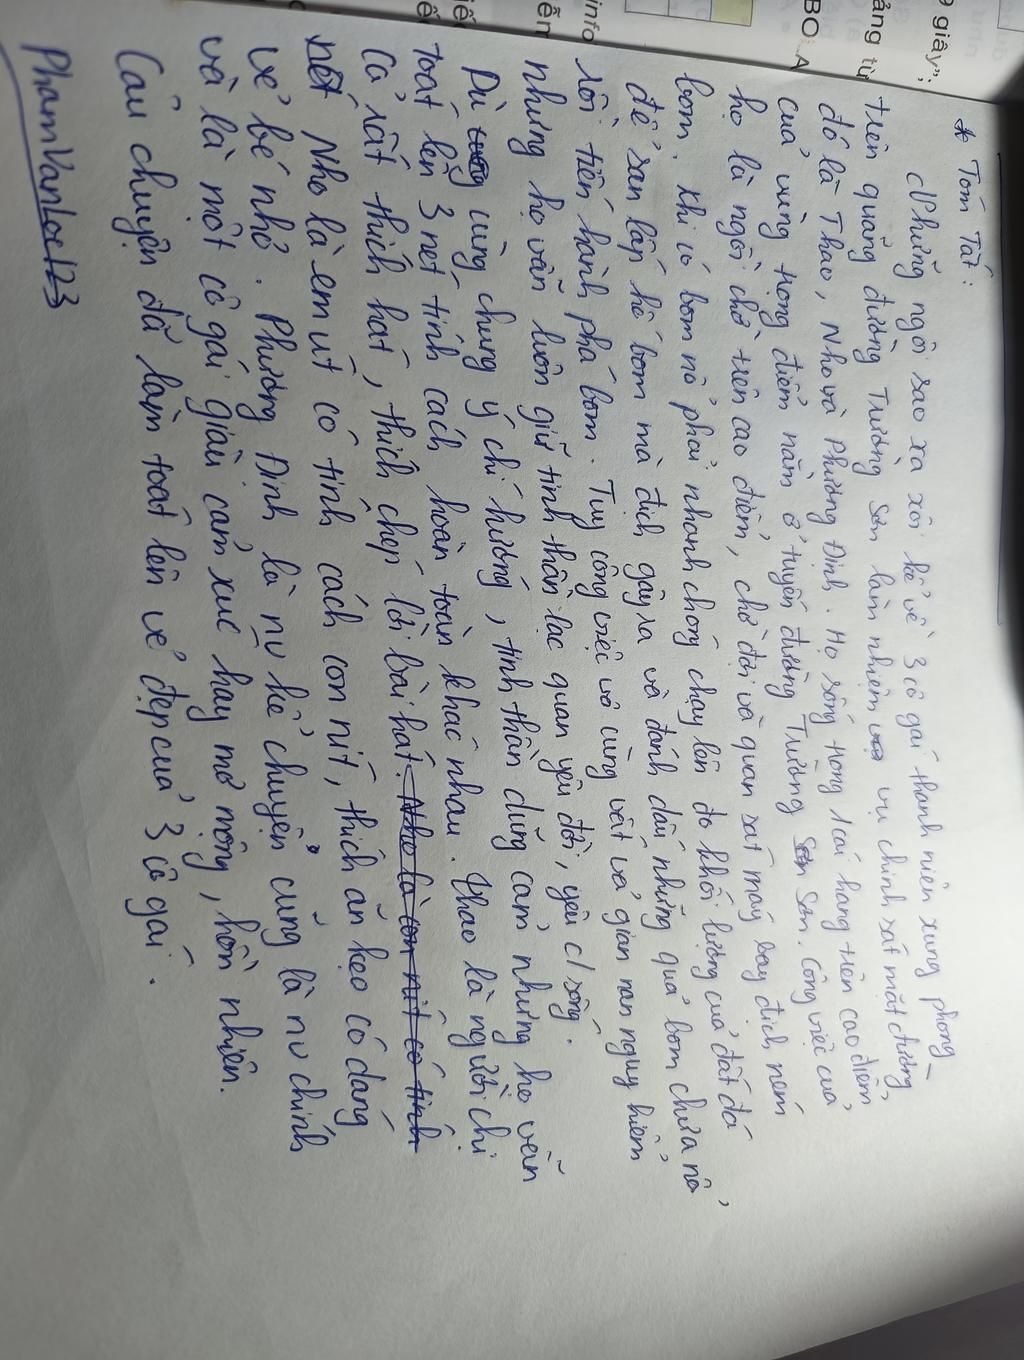 * Tóm Tắt:
Những ngôi sao xa xôi kể về 3 cô gái thanh niên xung phong
trên quãng đường Trường Sơn làm nhiệm vụ trinh sát mặt đường,
đó là Thao, Nho và Phương Định. Họ sống trong 1 cái hang trên cao điểm
của vùng trọng điểm nằm ở tuyến đường Trường Sơn. Công việc của
họ là ngồi chờ trên cao điểm, chờ đợi và quan sát máy bay địch ném
bom. Khi có bom nổ phải nhanh chóng chạy lên đo khối lượng của đất đá
để san lấp hố bom mà địch gây ra và đánh dấu những quả bom chưa nổ
rồi tiến hành phá bom. Tuy công việc vô cùng vất vả gian nan nguy hiểm
nhưng họ vẫn luôn giữ tinh thần lạc quan yêu đời, yêu c/sống.
Dù cùng chung ý chí hướng, tinh thần dũng cảm nhưng họ vẫn
toát lên 3 nét tính cách hoàn toàn khác nhau. Thao là người chị
Cả rất thích hát, thích chép lời bài hát. Nho là con nít có tính
Nho là em út có tính cách con nít, thích ăn kẹo có dáng
vẻ bé nhỏ. Phương Định là nữ kể chuyện cũng là nv chính
và là một cô gái giàu cảm xúc hay mơ mộng, hồn nhiên.
Câu chuyện đã làm toát lên vẻ đẹp của 3 cô gái.
PhamVanLoc123
giây";
ảng từ
BO
A
info
ễn
iế
ế